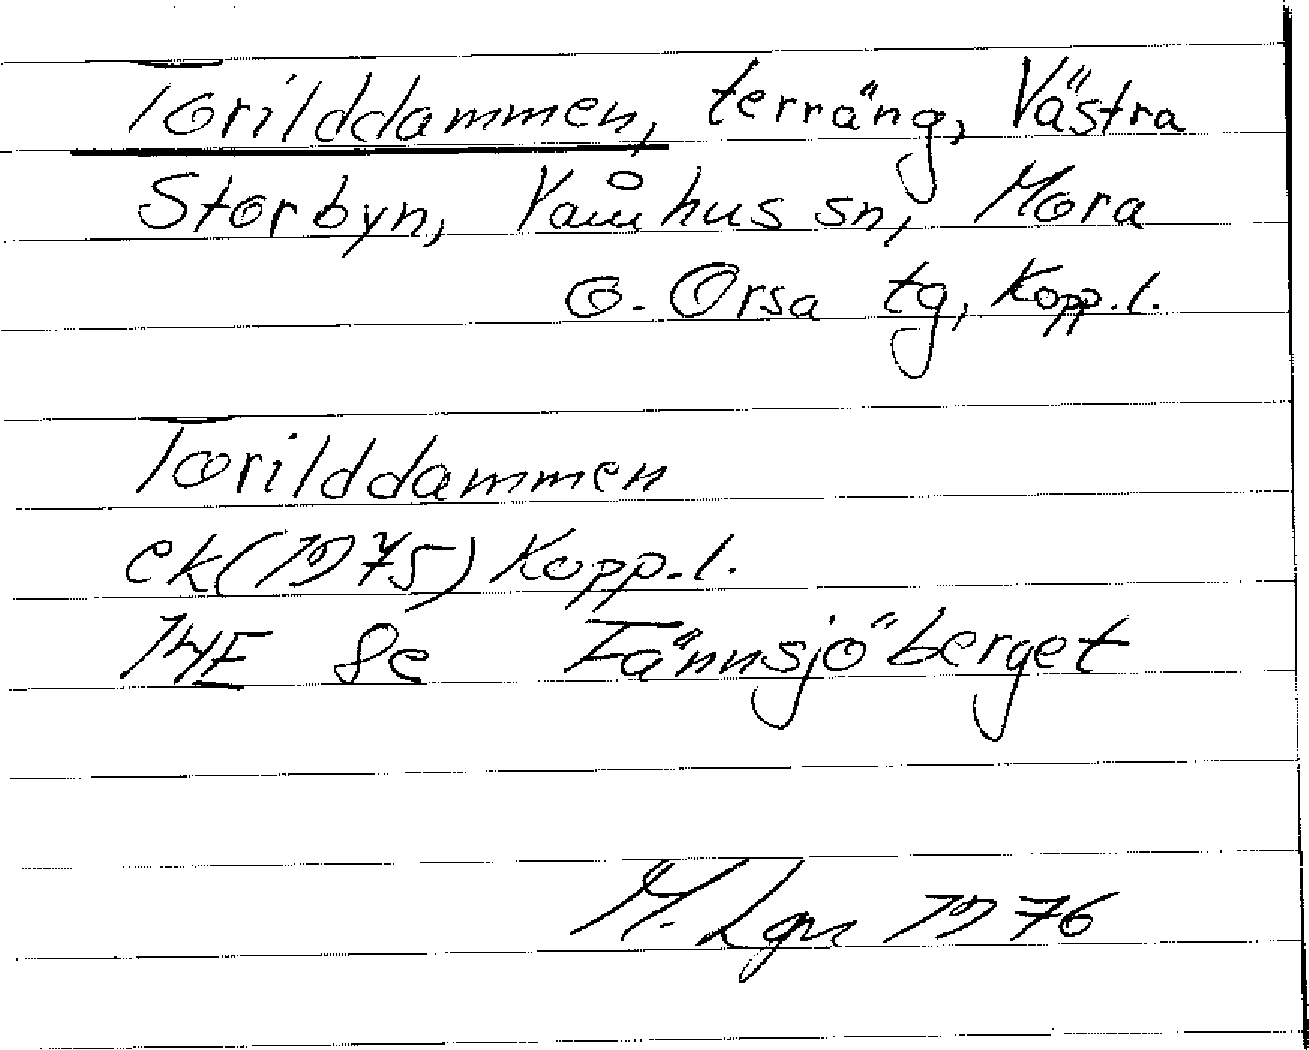 Torilddammen, terräng, Västra
Storbyn, Våmhus sn, Mora
o. Orsa tg, Kopp.l.
Torilddammen
ek(1975) Kopp.l.
14E 8e Fännsjöberget
M. Lgn 1976